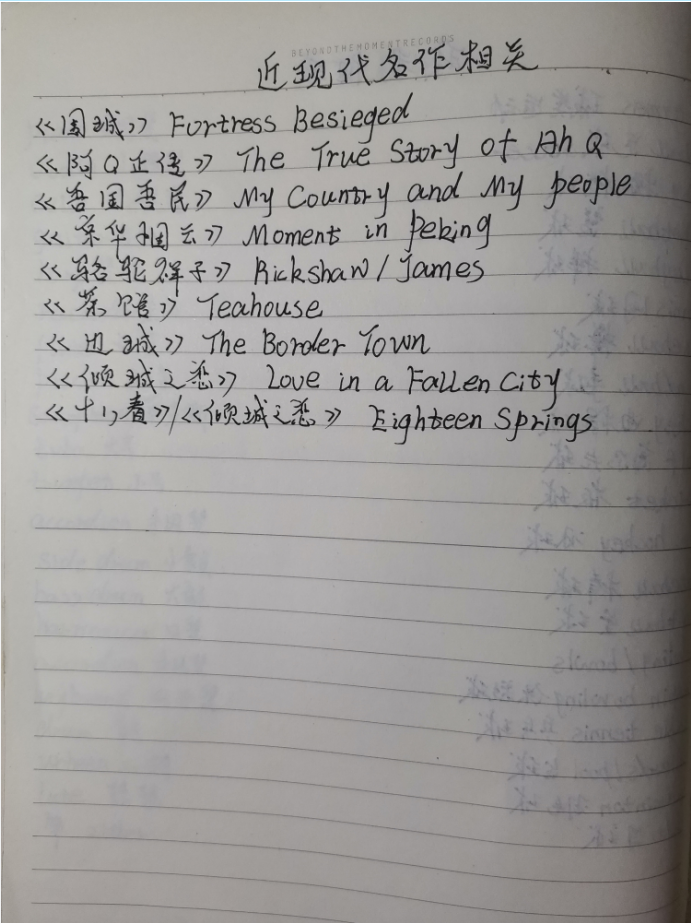 BEYONDTHEMOMENTRECORDS
近现代名作相关
《围城》 Fortress Besieged
《阿Q正传》 The True Story of Ah Q
《吾国吾民》 My Country and My people
《京华烟云》 Moment in Peking
《骆驼祥子》 Rickshaw/James
《茶馆》 Teahouse
《边城》 The Border Town
《倾城之恋》 Love in a Fallen City
《十八春》/《倾城之恋》 Eighteen Springs